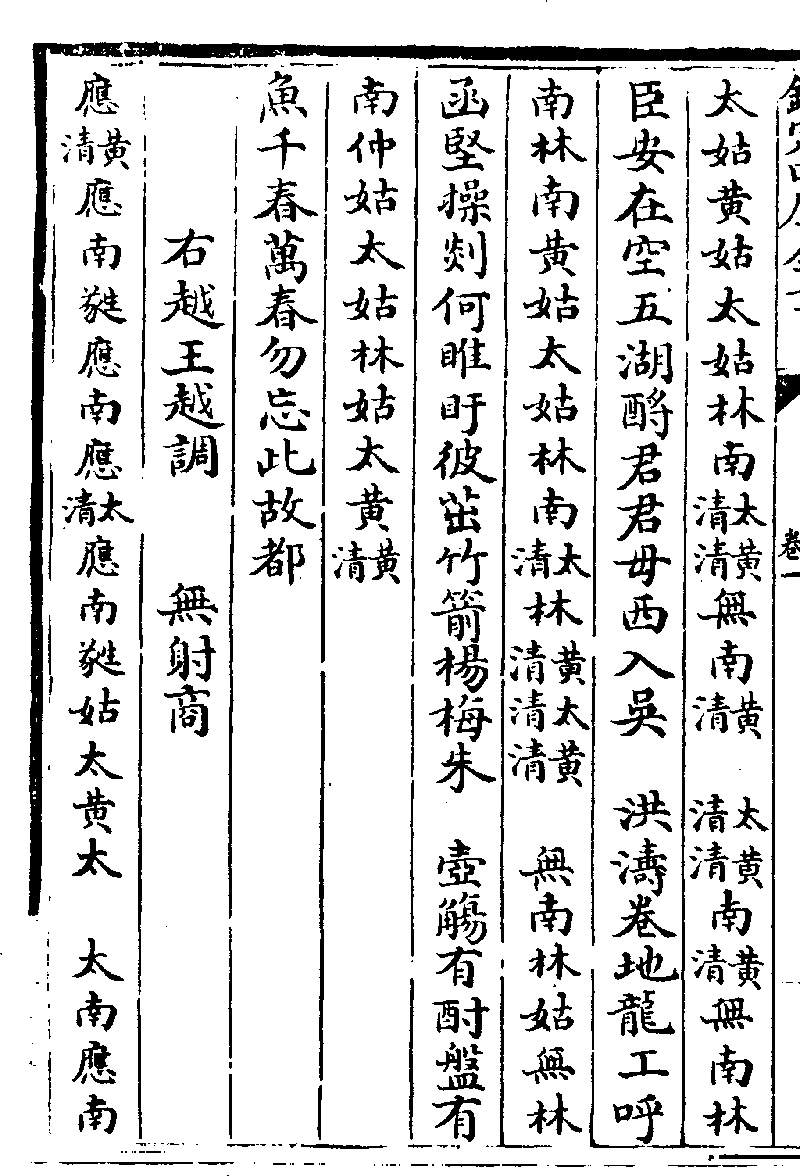 卷一
太姑黄姑太姑林南太清黄清無南黄清　太清黄清南黄清無南林
臣安在空五湖酹君君毋西入吳　洪濤卷地龍工呼
南林南黄姑太姑林南太清林黄清太清黄清　無南林姑無林
函堅操剡何睢盱彼茁竹箭楊梅朱　壺觴有酎盤有
南仲姑太姑林姑太黄黄清
魚千春萬春勿忘此故都
右越王越調　無射商
應黄清應南蕤應南應太清應南蕤姑太黄太　太南應南